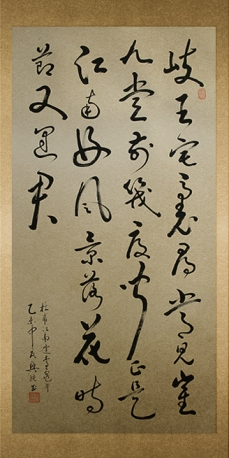 岐王宅裏尋常見崔
九堂前幾度聞正是
江南好風景落花時
節又逢君
杜甫江南逢李龜年
乙未中 書